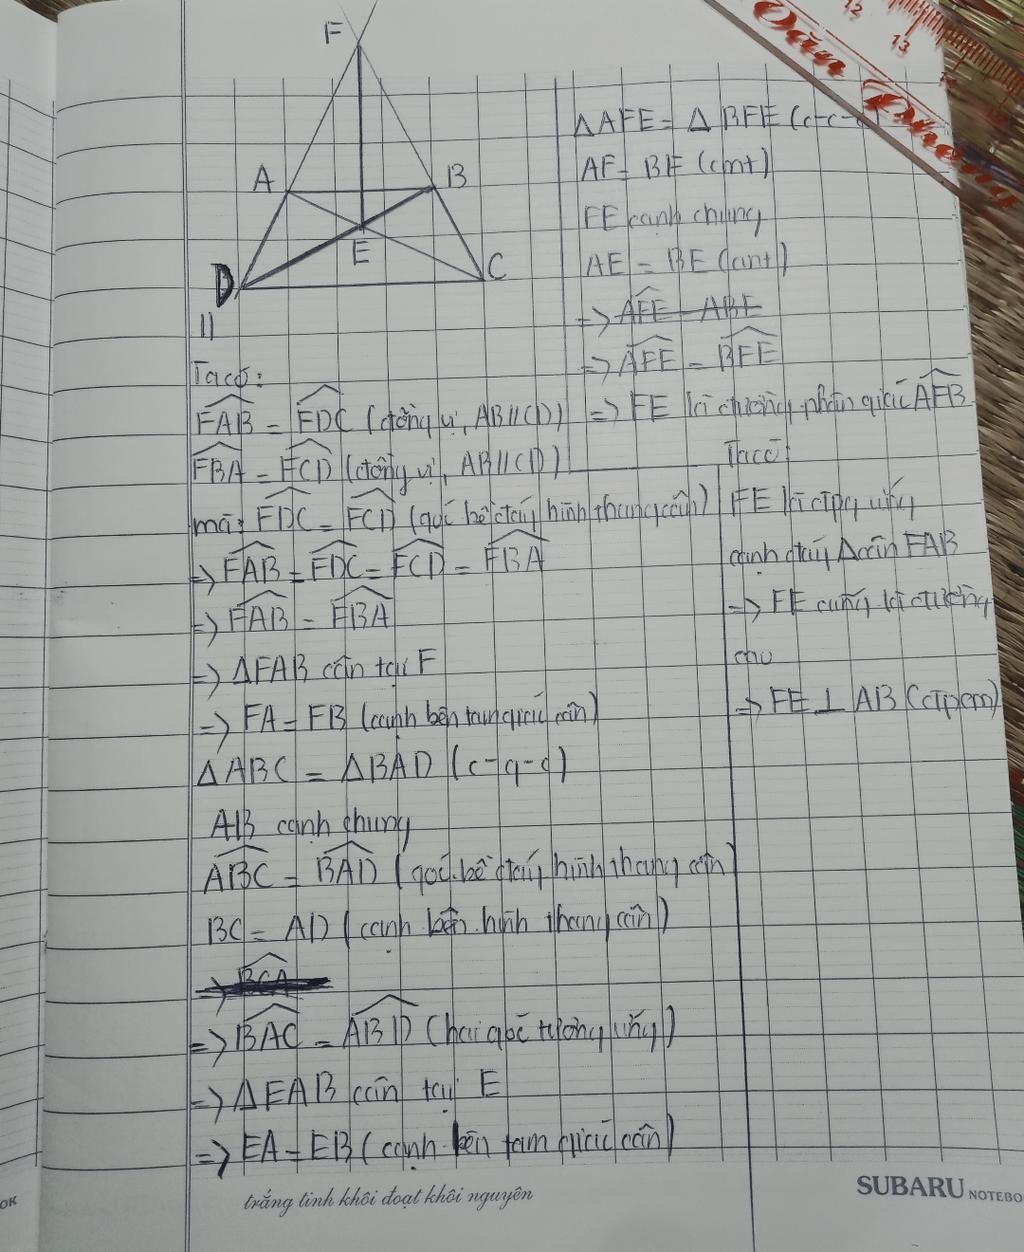 F
A
B
E
D
C
1)
Ta có:
FAB = FDC (đồng vị, AB//CD)
FBA = FCD (đồng vị, AB//CD)
mà: FDC = FCD (góc kề đáy hình thang cân)
=> FAB = FDC = FCD = FBA
=> FAB = FBA
=> ΔFAB cân tại F
=> FA = FB (cạnh bên tam giác cân)
ΔABC = ΔBAD (c-g-c)
AB cạnh chung
ABC = BAD (góc kề đáy hình thang cân)
BC = AD (cạnh bên hình thang cân)
=> BAC = ABD (hai góc tương ứng)
=> ΔEAB cân tại E
=> EA = EB (cạnh bên tam giác cân)
ΔAFE = ΔBFE (c-c-c)
AF = BF (cmt)
FE cạnh chung
AE = BE (cmt)
=> AFE = ABF
=> AFE = BFE
=> FE là đường phân giác AFB
Ta có:
FE là đpg ứng
cạnh đáy Δcân FAB
=> FE cũng là đường
cao
=> FE ⊥ AB (đpcm)
trắng tinh khôi đoạt khôi nguyên
SUBARU NOTEBO
OK
12
13